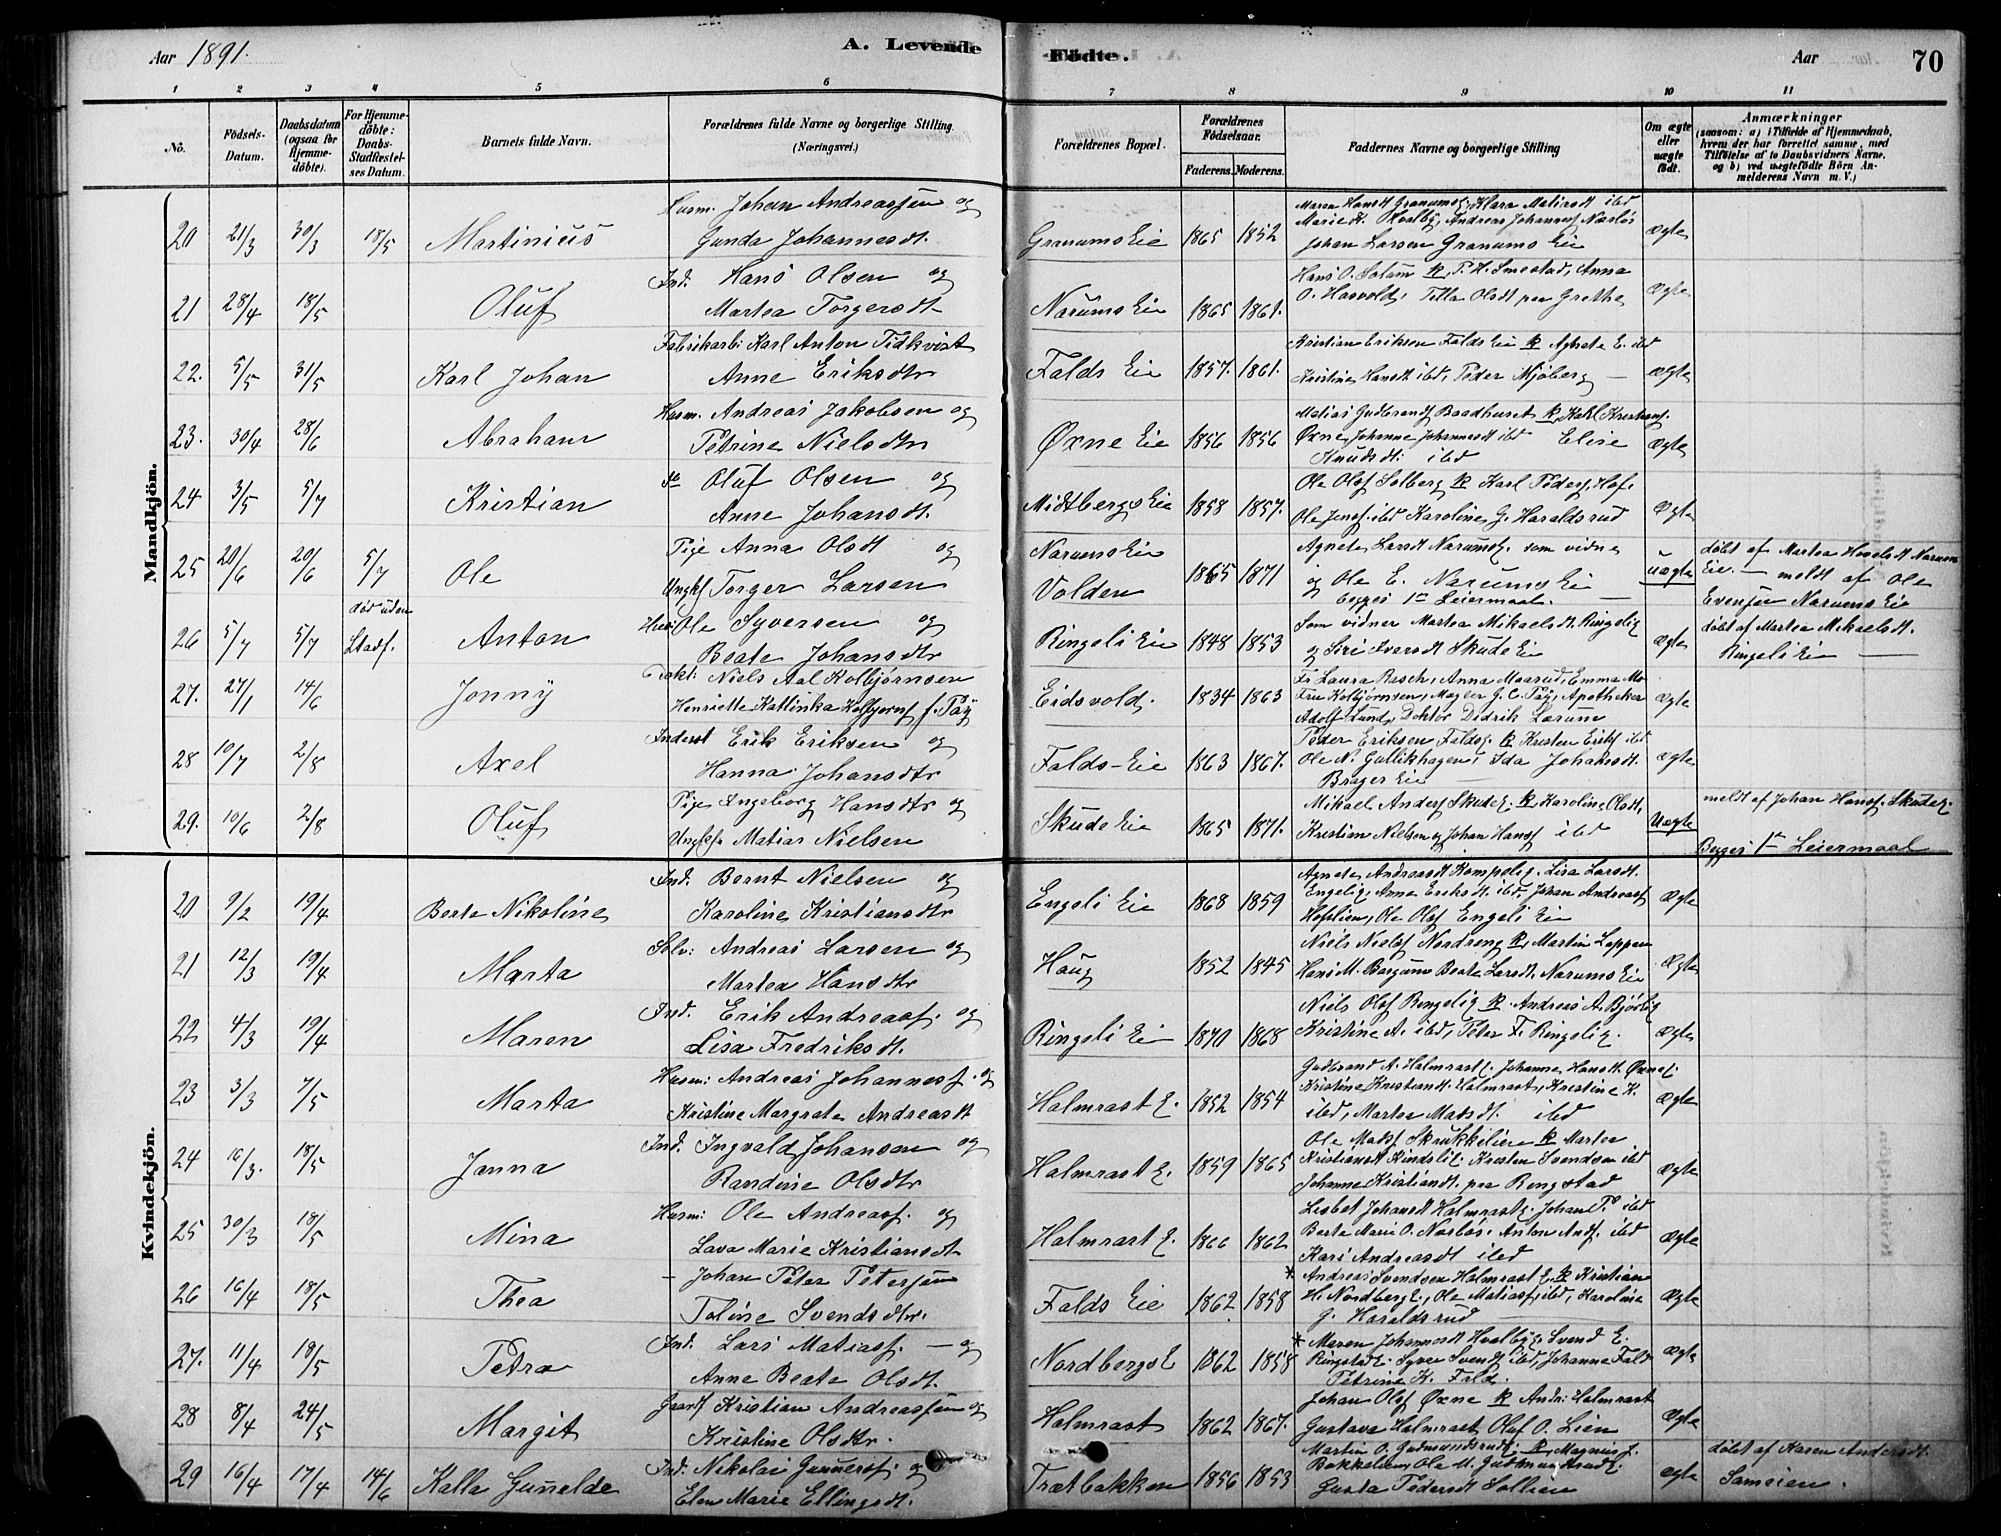 Aar 1891. A. Levende Födte. Aar 70
1 2 3 4 5 6 7 8 9 10 11
No. Födsels-Datum. Daabsdatum (ogsaa for Hjemmedöbte). For Hjemmedöbte: Daabs-Stadfæstelses Datum. Barnets fulde Navn. Forældrenes fulde Navne og borgerlige Stilling. (Næringsvei.) Forældrenes Bopæl. Forældrenes Födselsaar. Faderens. Moderens. Faddernes Navne og borgerlige Stilling Om ægte eller uægte födt. Anmærkninger (saasom: a) i Tilfælde af Hjemmedaab, hvem der har forrettet samme, med Tilföielse af to Daabsvidners Navne, og b) ved uægtefödte Börn Anmelderens Navn m. V.)
Mandkjön.
20 21/3 30/3 18/5 Martinius Husm. Johan Andreassen og
Gunda Johannesdt. Granums Eie 1865 1852 Maren Hansdt Granumsg. Klara Matisdt ibd
Marie H. Hvalby, Andreas Johannesf Næsløs
Johan Larsen Granums Eie ægte
21 28/4 18/5 Oluf Ind. Hans Olsen og
Martea Torgersdt Narums Eie 1865 1861. Hans O. Solum K, P. H. Smestad, Anna
O. Hasvold, Tella Olsdt paa Grethe Ægte
22. 5/5 31/5 Karl Johan Fabrikarb: Karl Anton Tidkvist
Anne Eriksdtr Falds Eie 1857. 1861. Kristian Eriksen Falds Eie K Agnete E. ibd
Kristine Hansdt ibd, Peder Mjøberg ægte
23. 30/4 28/6 Abraham Husm. Andreas Jakobsen og
Petrine Nielsdtr Øxne Eie 1856 1856 Matias Gudbrandsf Baadhuset K, Karl Kristiansf.
Øxne, Johanne Johannesdt ibd Elise
Knudsdt. ibd Ægte
24 3/5 5/7 Kristian do Oluf Olsen og
Anne Johansdt. Midtbergs Eie 1858 1857. Ole Olsf Solberg K Karl Pedersf. Hof.
Ole Jensf. ibd Karoline G. Haraldsrud Ægte
25 20/6 20/6 5/7 Ole Pige Anna Olsdt og
Ungkf Torger Larsen Narums Eie
Volden 1865 1871 Agnete Larsdt Narumsg. som vidne
og Ole E. Narums Eie
begges 1ste Leiermaal. uægte döbt af Martea Hovelsdt Narums
Eie. — meldt af Ole
Evensen Narums Eie
26 5/7 5/7 død uden
Stadf. Anton Husm Ole Syversen og
Beate Johansdtr Ringeli Eie 1848 1853 Som vidner Martea Mikaelsdt. Ringelig
og Siri Iversdt Skude Eie Ægte döbt af Martea Mikaelsdt.
Ringeli Eie
27. 27/1 14/6 Jonny Niels Aal Kolbjørnsen
Henriette Kattinka Kolbjørnsf f. Pay Eidsvold. 1834 1863 Fr Laura Rasch, Anna Maarud, Emma Mo
Fru Kolbjørnsen, Mayler G. C. Pay, Apotheker
Adolf Lund, Doktor Didrik Lærum ægte
28 10/7 2/8 Axel Inderst Erik Eriksen og
Hanna Johansdtr Falds-Eie 1863 1867. Peder Eriksen Faldsg. K Kristen Eriksf ibd
Ole N. Gullikhagen, Ida Johansdt.
Brager Eie ægte
29. 10/6 2/8 Oluf Pige Ingeborg Hansdtr og
Ungkf Matias Nielsen Skude Eie 1865 1871. Mikael Andersf Skudeg. K, Karoline Olsdt,
Kristian Nielsen og Johan Hansf ibd Uægte meldt af Johan Hansf. Skudeg.
Begges 1ste Leiermaal
Kvindekjön.
20 9/2 19/4 Berte Nikoline Ind. Bernt Nielsen og
Karoline Kristiansdtr Engeli Eie 1868 1859 Agnete Andreasdt Kompelig. Lisa Larsdt.
Engelig, Anne Eriksdt. ibd, Johan Andreassf
Hofslien, Ole Olsf Engeli Eie Ægte
21 12/3 19/4 Marta Selv: Andreas Larsen og
Martea Hansdtr Haug 1852 1845 Niels Nielsf Nordreng K, Martin Loppen
Hans M. Bergum Beate Larsdt. Narums Eie Ægte
22 4/3 19/4 Maren Ind. Erik Andreasf. og
Lisa Fredriksdt. Ringeli Ei 1870 1868 Niels Olsf Ringelig K. Andreas A. Bjørlig
Kristine A. ibd, Peter F. Ringelig. Ægte
23 3/3 7/5 Marta Husm: Andreas Johannesf. og
Kristine Margrete Andreasdt Halmrast E. 1852 1854 Gudbrand A. Halmrastg. Johanne Hansdt Øxneg.
Kristine Kristiansdt. Halmrast, Kristine K.
ibd, Martea Matsdt. ibd Ægte
24 16/3. 18/5 Janna Ind. Ingvald Johansen og
Randine Olsdtr Halmrast E. 1859 1865 Ole Madsf Skrukkelien K Martea
Kristiansdt Kindslig. Kristen Svendsen ibd
Johanne Kristiansdt. paa Ringstad Ægte
25 30/3 18/5 Mina Husm: Ole Andreasf. og
Lava Marie Kristiansdt Halmrast E. 1866 1862 Lisbet Johansdt Halmrastg. Johan P. ibd
Berte Marie O. Næsløs. Anton Andf. ibd
Kari Andreasdt ibd Ægte
26 16/4 18/5 Thea — Johan Peter Petersen
Toline Svendsdtr. Falds Eie 1862 1858 * Andreas Svendsen Halmrast E. K Kristian
H. Nordbergg., Ole Matiasf, ibd, Karoline
G. Haraldsrud Ægte
27. 11/4 18/5 Petra Ind. Lars Matiasf. — og
Anne Beate Olsdt. Nordbergs E 1862 1858 * Maren Johannesdt Hvalbyg. Svend E.
Ringstadg. Syver Svendsf ibd, Johanne Fald
Petrine K. Fald. Ægte
28 8/4 24/5 Margit Gaardf Kristian Andreassen og
Kristine Olsdtr. Halmrast 1862 1867. Johan Olsf Øxne K Andr: Halmrast
Gustava Halmrast Oluf O. Lien Ægte
29 16/4 17/4 14/6 Kalla Gunelde Ind. Nikolai Gunersf. og
Elen Marie Ellingsdt. Trætbakken 1856 1853 Martin O. Gudmundsrudg. K, Magnus J.
Bakkelien, Ole M. Gudmundsrudg.
Gusta Pedersdt Sollien ægte döbt af Karen Andersdt.
Sameien.